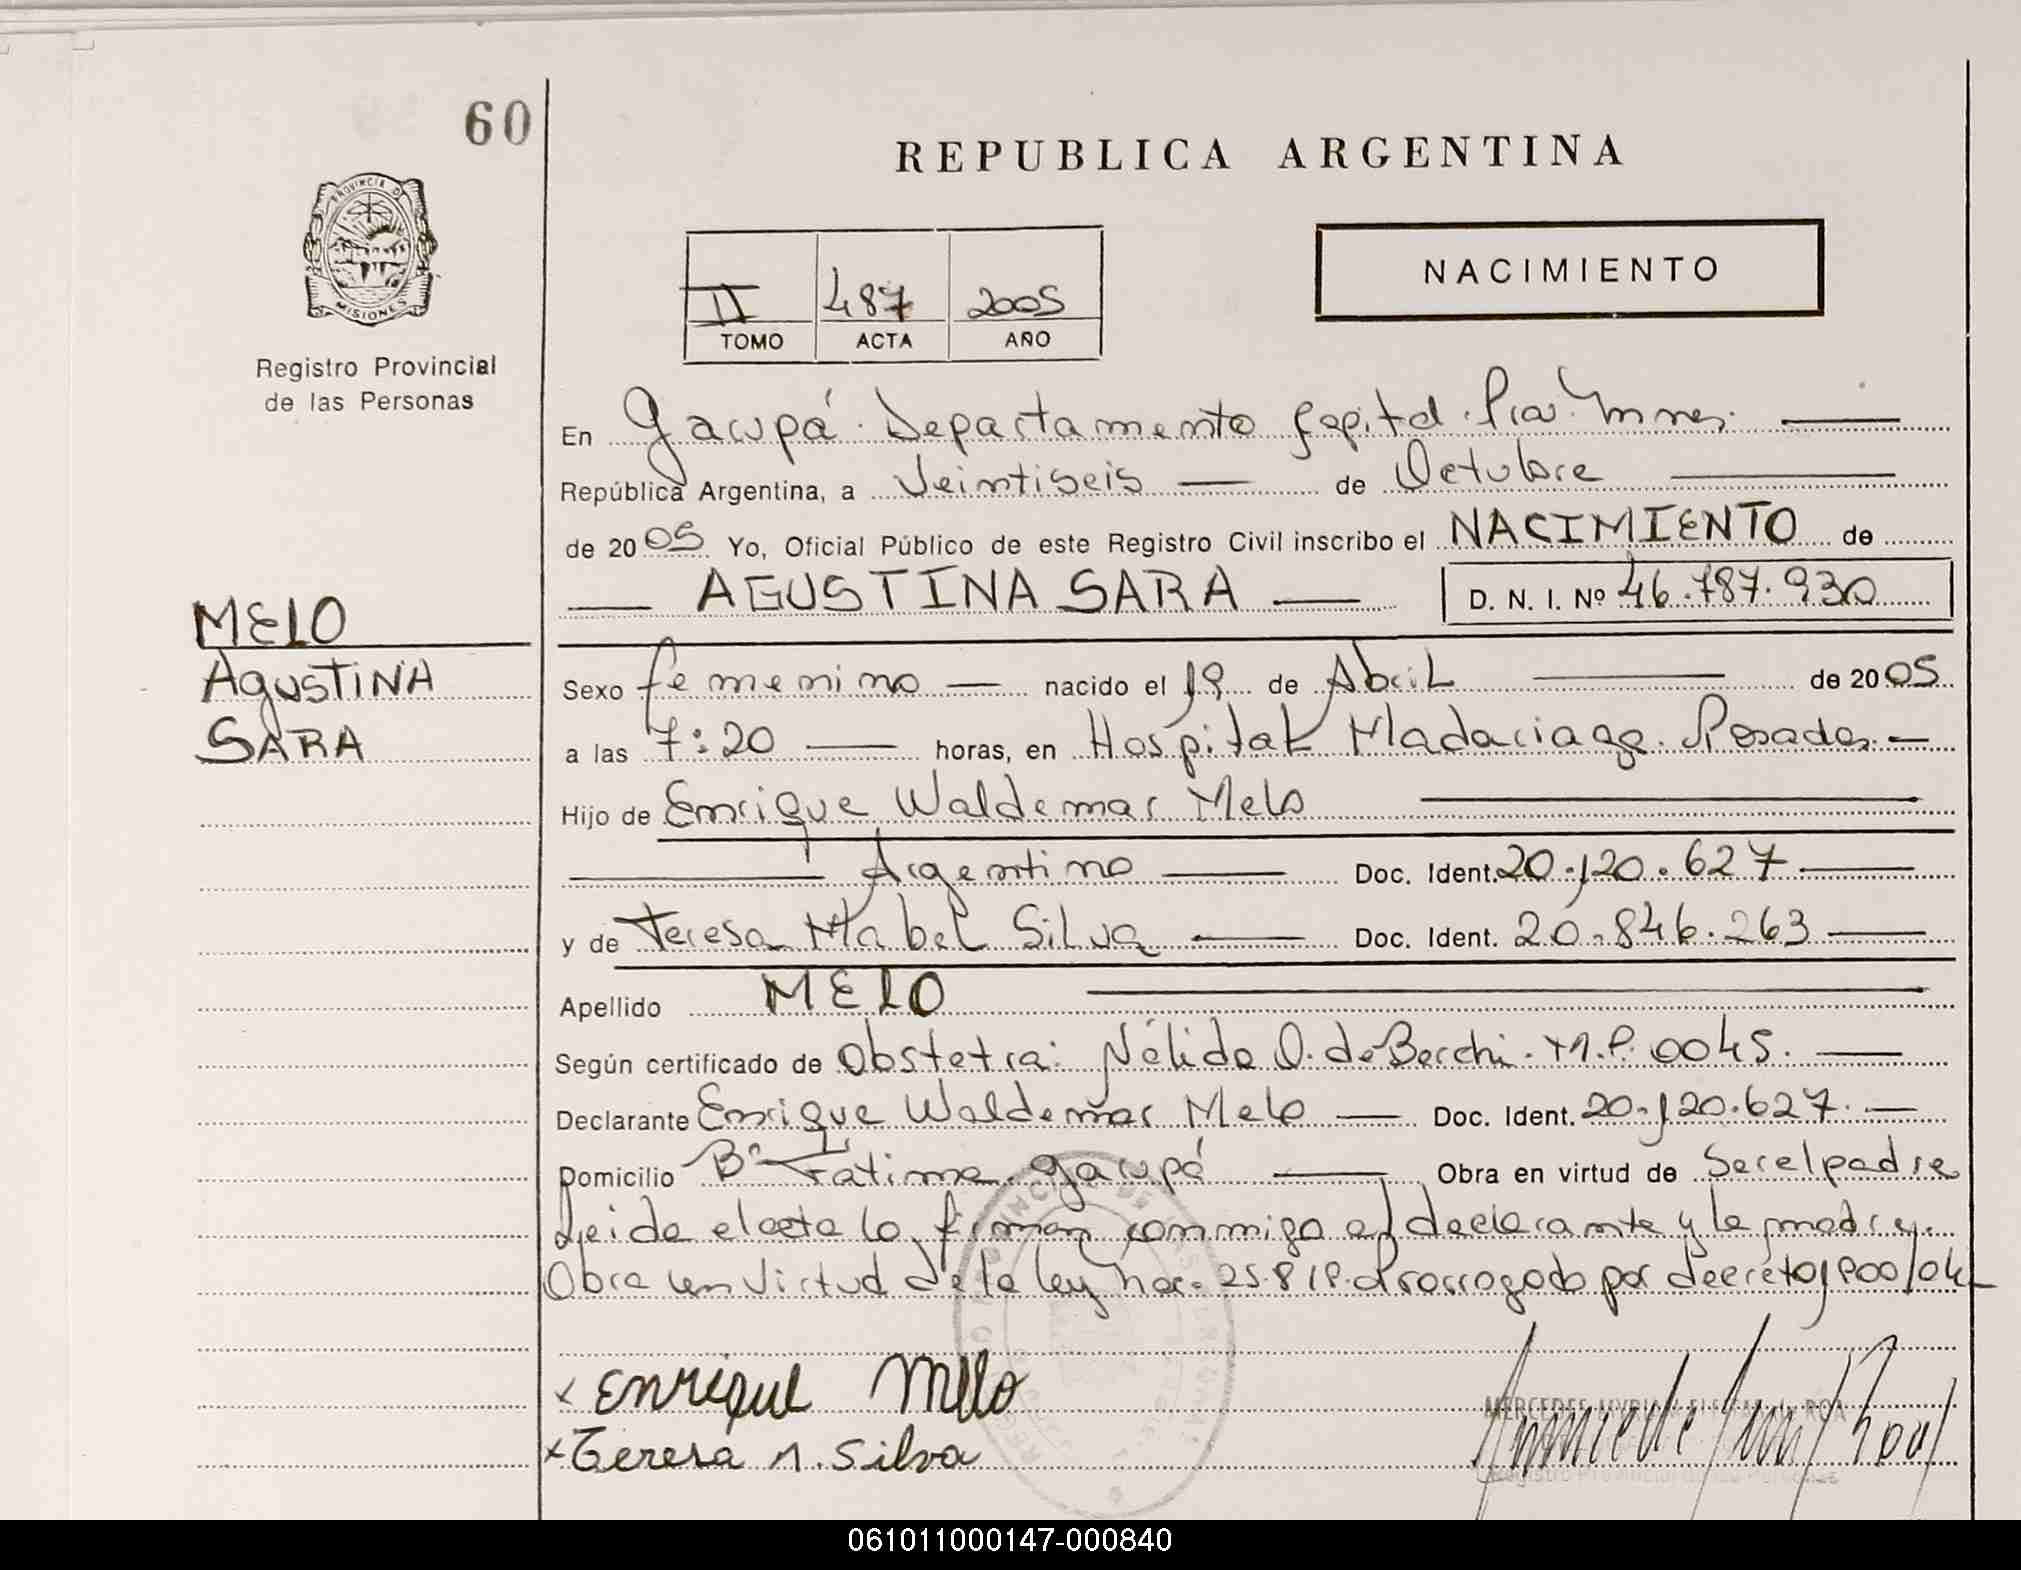 60
REPUBLICA ARGENTINA
PROVINCIA DE
MISIONES
Registro Provincial
de las Personas
II 487 2005
TOMO ACTA AÑO
NACIMIENTO
En Garupá. Departamento Capital. Pcia. Mnes.
República Argentina, a Veintiseis de Octubre
de 2005 Yo, Oficial Público de este Registro Civil inscribo el NACIMIENTO de
AGUSTINA SARA D. N. I. Nº 46.787.930
MELO
AGUSTINA
SARA
Sexo femenino nacido el 19 de Abril de 2005
a las 7:20 horas, en Hospital Madariaga. Posadas.
Hijo de Enrique Waldemar Melo
Argentino Doc. Ident. 20.120.627
y de Teresa Mabel Silva Doc. Ident. 20.846.263
Apellido MELO
Según certificado de Obstetra: Nélida O. de Becchi. M.P. 0045.
Declarante Enrique Waldemar Melo Doc. Ident. 20.120.627.
Domicilio Bº Fatima. Garupá Obra en virtud de Ser el padre
Leida el acta la firman conmigo el declarante y la madre.
Obra en Virtud de la ley nac. 25.819. Prorrogado por decreto 1900/04
x Enrique Melo
x Teresa M. Silva
Registro Provincial de las Personas
061011000147-000840